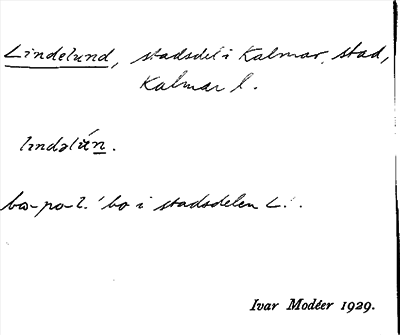 Lindelund, stadsdel i Kalmar stad,
Kalmar l.
lɩndəlún.
bo på L. 'bo i stadsdelen L.'.
Ivar Modéer 1929.